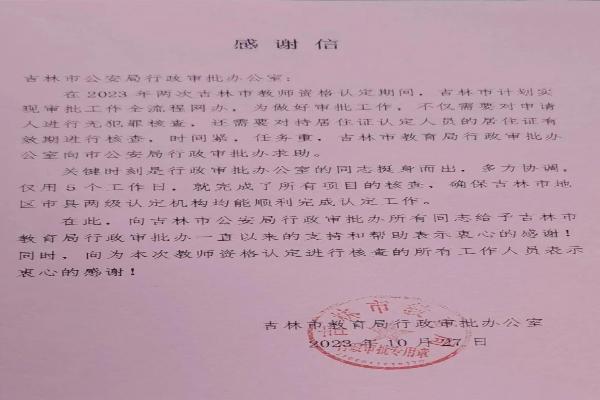 感谢信
吉林市公安局行政审批办公室：
在2023年两次吉林市教师资格认定期间，吉林市计划实
现审批工作全流程网办，为做好审批工作，不仅需要对申请
人进行无犯罪核查，还需要对持居住证认定人员的居住证有
效期进行核查，时间紧，任务重，吉林市教育局行政审批办
公室向市公安局行政审批办求助。
关键时刻是行政审批办公室的同志挺身而出，多方协调，
仅用5个工作日，就完成了所有项目的核查，确保吉林市地
区市县两级认定机构均能顺利完成认定工作。
在此，向吉林市公安局行政审批办所有同志给予吉林市
教育局行政审批办一直以来的支持和帮助表示衷心的感谢！
同时，向为本次教师资格认定进行核查的所有工作人员表示
衷心的感谢！
吉林市教育局行政审批办公室
2023年10月27日
行政审批专用章